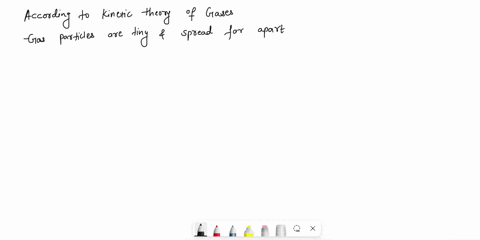 According to kinetic theory of Gases
-Gas particles are tiny & spread far apart